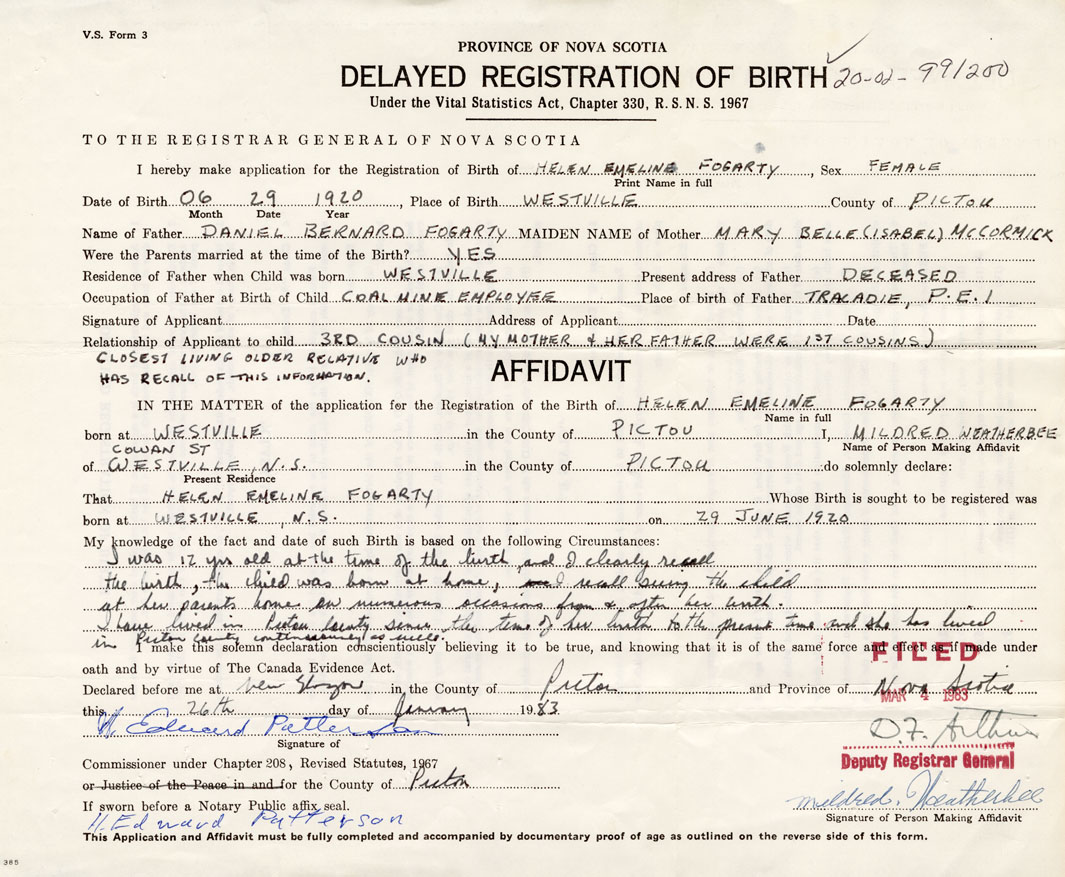 V.S. Form 3
PROVINCE OF NOVA SCOTIA
DELAYED REGISTRATION OF BIRTH 20-02- 99/200
Under the Vital Statistics Act, Chapter 330, R. S. N. S. 1967
TO THE REGISTRAR GENERAL OF NOVA SCOTIA
I hereby make application for the Registration of Birth of HELEN EMELINE FOGARTY, Sex FEMALE
Print Name in full
Date of Birth 06 29 1920, Place of Birth WESTVILLE County of PICTOU
Month Date Year
Name of Father DANIEL BERNARD FOGARTY MAIDEN NAME of Mother MARY BELLE (ISABEL) McCORMICK
Were the Parents married at the time of the Birth? YES
Residence of Father when Child was born WESTVILLE Present address of Father DECEASED
Occupation of Father at Birth of Child COAL MINE EMPLOYEE Place of birth of Father TRACADIE, P.E.I
Signature of Applicant Address of Applicant Date
Relationship of Applicant to child 3RD COUSIN (MY MOTHER & HER FATHER WERE 1ST COUSINS)
CLOSEST LIVING OLDER RELATIVE WHO
HAS RECALL OF THIS INFORMATION.
AFFIDAVIT
IN THE MATTER of the application for the Registration of the Birth of HELEN EMELINE FOGARTY
Name in full
born at WESTVILLE in the County of PICTOU I, MILDRED WEATHERBEE
COWAN ST Name of Person Making Affidavit
of WESTVILLE, N.S. in the County of PICTOU do solemnly declare:
Present Residence
That HELEN EMELINE FOGARTY Whose Birth is sought to be registered was
born at WESTVILLE, N.S. on 29 JUNE 1920
My knowledge of the fact and date of such Birth is based on the following Circumstances:
I was 12 yrs old at the time of the birth and I clearly recall
the birth, the child was born at home, I recall seeing the child
at her parents home on numerous occasions from & after her birth.
I have lived in Pictou County since the time of her birth to the present time and she has lived
in Pictou County continuously as well.
I make this solemn declaration conscientiously believing it to be true, and knowing that it is of the same force and effect as if made under
oath and by virtue of The Canada Evidence Act.
FILED
Declared before me at New Glasgow in the County of Pictou and Province of Nova Scotia
MAR 4 1983
this 26th day of January 1983
H. Edward Patterson
Signature of
D.F. Arthur
Deputy Registrar General
Commissioner under Chapter 208, Revised Statutes, 1967
or Justice of the Peace in and for the County of Pictou
If sworn before a Notary Public affix seal.
H. Edward Patterson
Mildred Weatherbee
Signature of Person Making Affidavit
This Application and Affidavit must be fully completed and accompanied by documentary proof of age as outlined on the reverse side of this form.
385